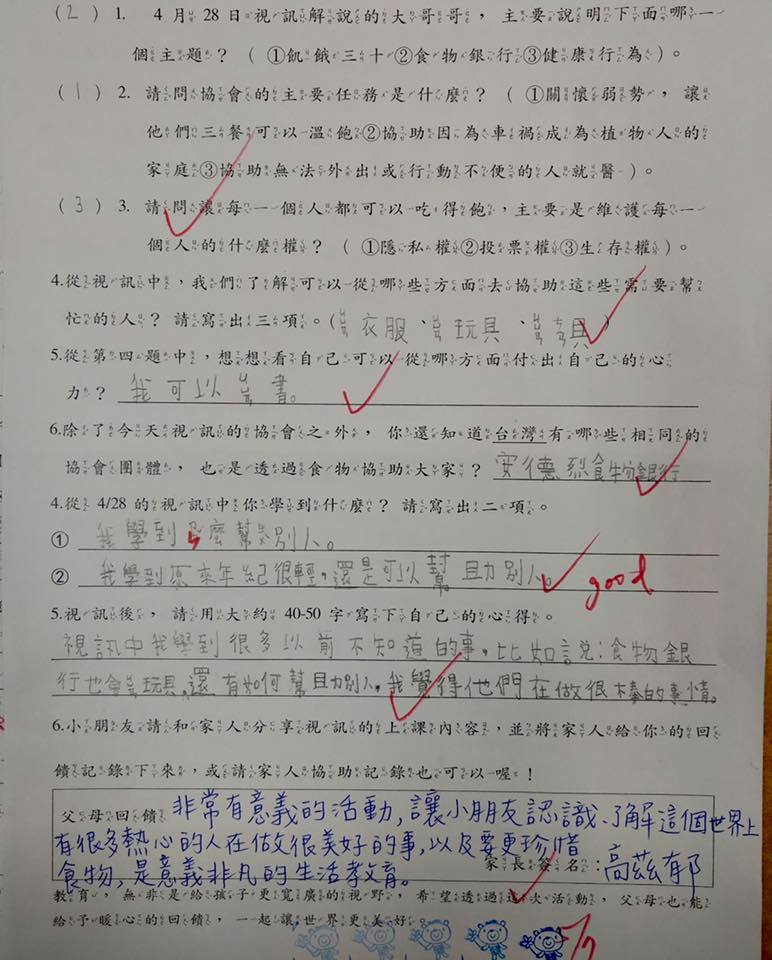 (2) 1. 4月28日視訊解說的大哥哥，主要說明下面哪一
個主題？（①飢餓三十②食物銀行③健康行為）。
(1) 2. 請問協會的主要任務是什麼？（①關懷弱勢，讓
他們三餐可以溫飽②協助因為車禍成為植物人的
家庭③協助無法外出或行動不便的人就醫）。
(3) 3. 請問讓每一個人都可以吃得飽，主要是維護每一
個人的什麼權？（①隱私權②投票權③生存權）。
4.從視訊中，我們了解可以從哪些方面去協助這些需要幫
忙的人？請寫出三項。(ㄐㄩㄢ衣服、ㄐㄩㄢ玩具、ㄐㄩㄢ具)
5.從第四題中，想想看自己可以從哪方面付出自己的心
力？我可以ㄐㄩㄢ書。
6.除了今天視訊的協會之外，你還知道台灣有哪些相同的
協會團體，也是透過食物協助大家？安德烈食物銀行
4.從 4/28 的視訊中你學到什麼？請寫出二項。
① 我學到麼幫別人。
② 我學到原來年紀很輕，還是可以幫助別人。 good
5.視訊後，請用大約 40-50 字寫下自己的心得。
視訊中我學到很多以前不知道的事，比如說：食物銀
行也會ㄐㄩㄢ玩具，還有如何幫助別人，我覺得他們在做很棒的事情。
6.小朋友請和家人分享視訊的上課內容，並將家人給你的回
饋記錄下來，或請家人協助記錄也可以喔！
父母回饋 非常有意義的活動，讓小朋友認識、了解這個世界上
有很多熱心的人在做很美好的事，以及要更珍惜
食物，是意義非凡的生活教育。 家長簽名：高茲郁
教育，無非是給孩子更寬廣的視野，希望透過這次活動，父母也能
給予暖心的回饋，一起讓世界更美好